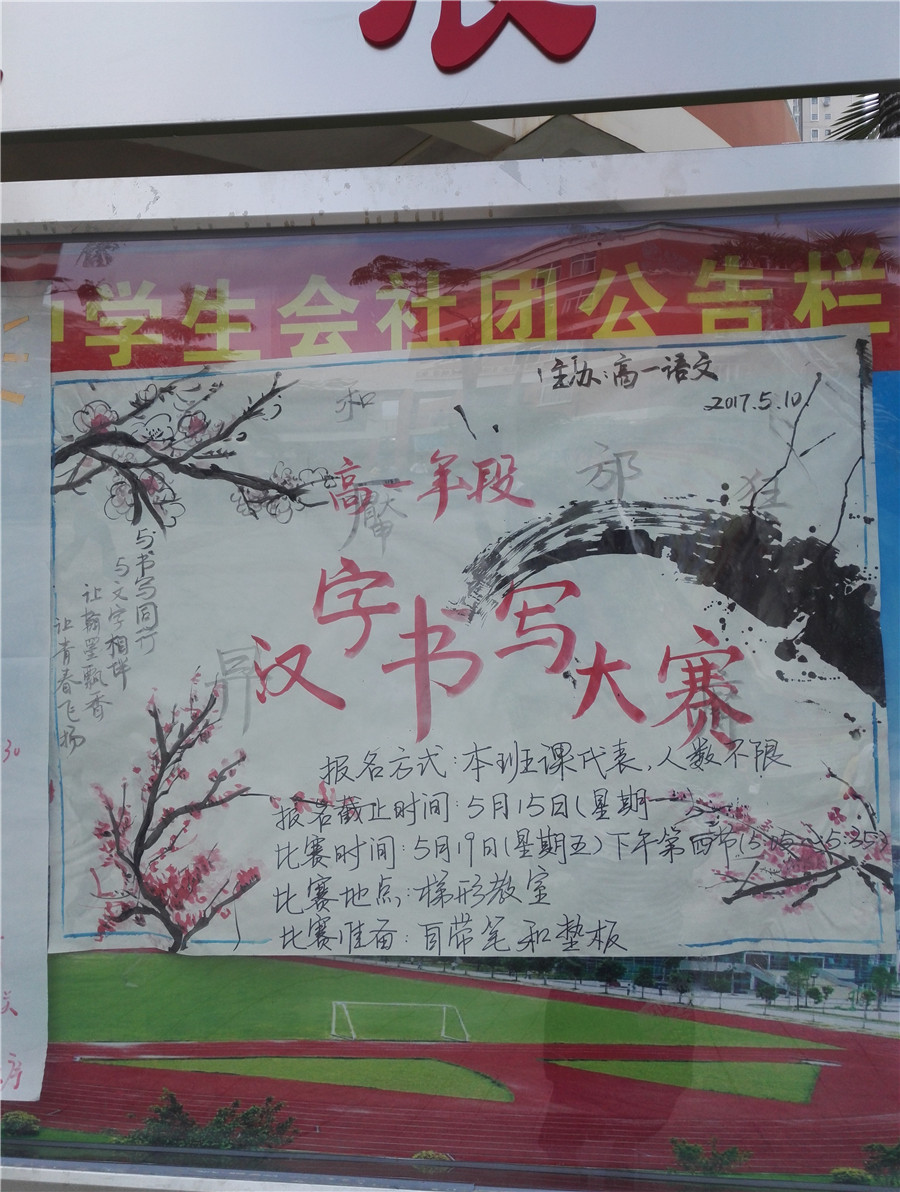 中学生会社团公告栏
主办:高一语文
2017.5.10
和
邠
狂
高一年段
汉字书写大赛
与书写同行
与文字相伴
让翰墨飘香
让青春飞扬
报名方式:本班课代表,人数不限
报名截止时间:5月15日(星期一
比赛时间:5月19日(星期五)下午第四节(5:
5:35)
比赛地点:梯形教室
比赛准备:自带笔和垫板
30